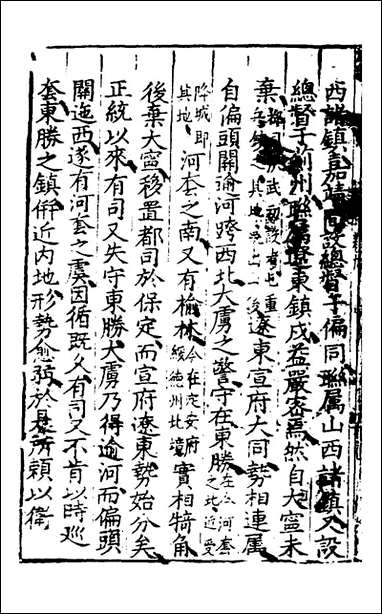 西諸鎮嘉靖間設總督于偏同聯属山西諸鎮又設
總督于薊州聯属遼東鎮戍益嚴密焉然自大寧未
棄 後遼東宣府大同勢相連属
自偏頭關逾河跨西北大虜之警守在東勝在河套之北近受
降城即其地河套之南又有榆林今在延安府綏德州北境實相犄角
後棄大寧移置都司於保定而宣府遼東勢始分矣
正統以來有司又失守東勝大虜乃得逾河而偏頭
關迤西遂有河套之虞因循既久有司又不肯以時巡
套東勝之鎮俱近內地形勢愈弱於是所賴以衛